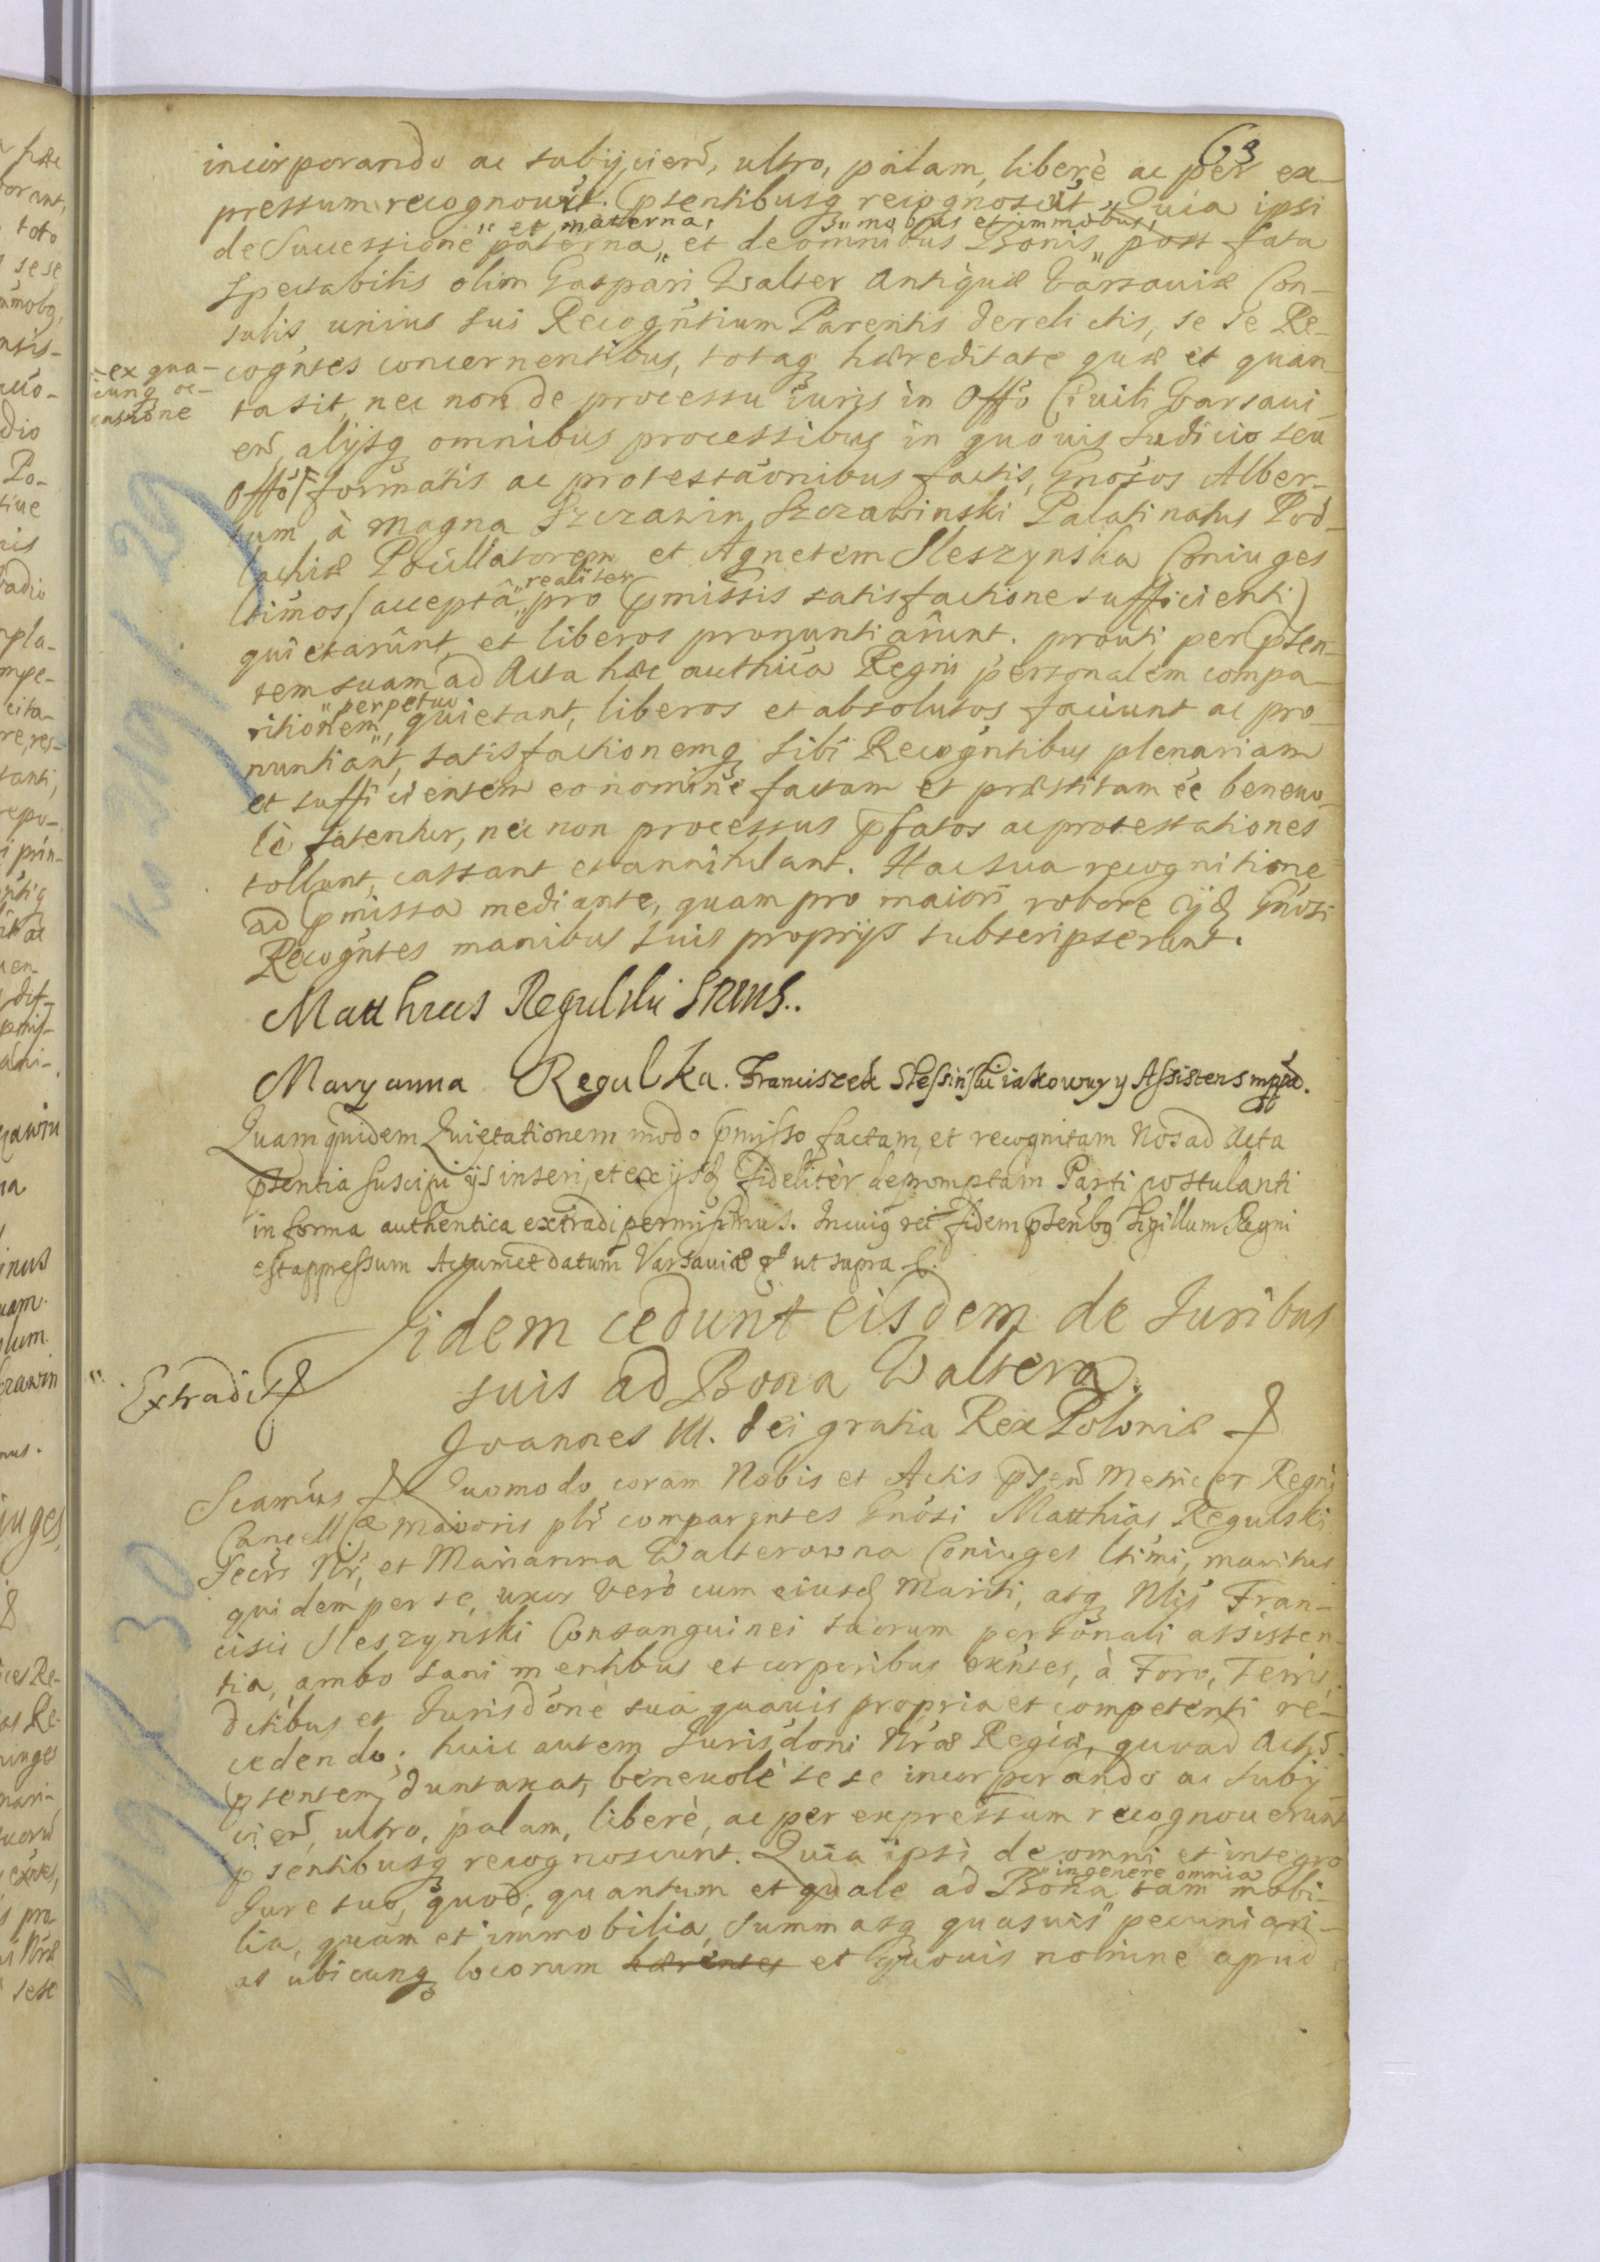 63
incorporando ac subijciend, ultro, palam, liberè ac per ex-
pressum recognovit. Pntibusq recognoscut. Quia ipsi
" et materna, " mobibus et immobibus,
de Successione paterna" et de omnibus Bonis" post fata
Spectabilis olim Gaspari Walter Antiquæ Varsaviæ Con-
sulis, unius sui Recogntium Parentis derelictis, se se Re-
cogntes concernentibus, totaq hæreditate quæ et quan-
- ex qua-
cunq oc-
casione
ta sit, nec non de processu iuris in Offo Civili Varsavi-
en, alijsq omnibus processibus in quovis Judicio seu
Offo formatis ac protestaonibus factis, Gnosos Alber-
tum à Magna Szczawin Szczawinski Palatinatus Pod-
lachiæ Pocillatorem et Agnetem Sleszynska Coniuges
realiter
ltimos, (acceptâ" pro pmissis satisfactione sufficienti)
quietarunt, et liberos pronuntiarunt. prouti per psen-
tem suam ad Acta hæc authica Regni personalem compa-
" perpetuo
ritionem", quietant, liberos et absolutos faciunt ac pro-
nuntiant, satisfactionemq sibi Recogntibus plenariam
et sufficientem eo nomine factam et præstitam ee benevo-
lè fatentur, nec non processus pfatos ac protestationes
tollunt, cassant et annihilant. Hac sua recognitione
ad pmissa mediante, quam pro maiori robore ijd Gnosi
Recogntes manibus suis proprijs subscripserunt.
Matthæus Regulski SRMS..
Maryanna Regulka. Franciszek Slessinski iako wuy y Assistens mppa.
Quam quidem Quietationem modo pmisso factam, et recognitam Nos ad Acta
psentia suscipi ijs inseri, et ex ijsd fideliter depromptam Parti postulanti
in forma authentica extradi permisimus. In cuiq rei fidem psenbq Sigillum Regni
est appressum Actum et datum Varsaviæ & ut supra &.
Iidem cedunt eisdem de Juribus
suis ad Bona Waltera.
Extradit
Joannes III. Dei gratia Rex Poloniæ &
Scamus & Quomodo coram Nobis et Actis psen Metricer Regni
Cancell æ Maioris plr comparentes Gnosi Matthias Regulski
Secrs Nr, et Marianna Walterowna Coniuges ltimi, maritus
quidem per se, uxor verò cum eiusd Mariti, atq Nlis Fran-
cisci Sleszynski Consanguinei suorum personali assisten-
tia, ambo sani mentibus et corporibus exntes, à Foro, Terris,
dctibus et Jurisdone sua quavis propria et competenti re-
cedendo; huic autem Jurisdoni Nræ Regiæ, quoad Act
psentem duntaxat, benevolè se se incorporando ac subij
ciend, ultro, palam, liberè, ac per expressum recognoverunt
psentibusq recognoscunt. Quia ipsi de omni et integro
" in genere omnia
Jure suo, quod, quantum et quale ad Bona tam mobi-
lia, quam et immobilia, summasq quasvis" pecuniari-
as ubicunq locorum hærentes et quovis nomine apud